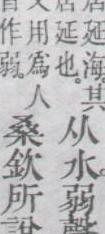 居延海。其
居延也。
从水。弱聲
又用爲人
作弱。
桑欽所說